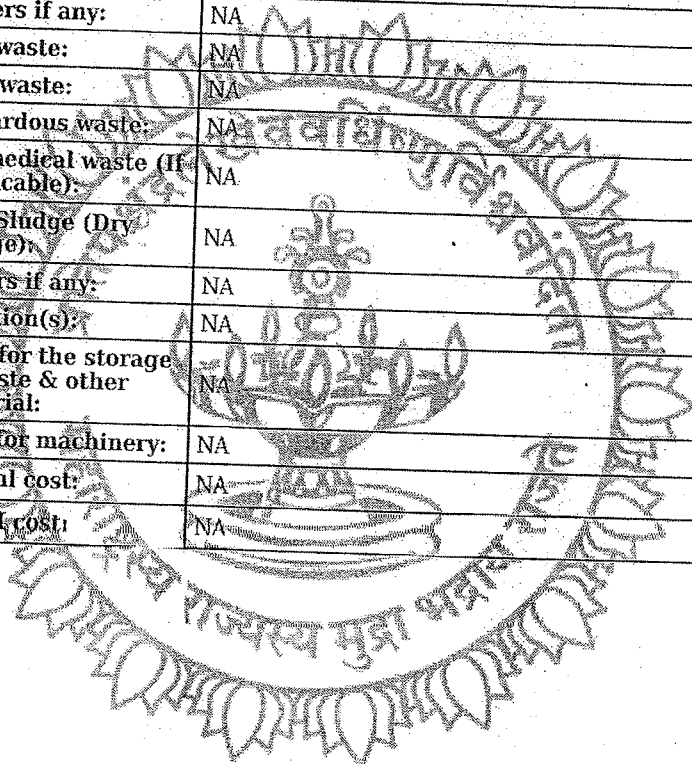 ers if any: NA
waste: NA
waste: NA
ardous waste: NA
medical waste (If
icable): NA
Sludge (Dry
ge): NA
rs if any: NA
ion(s): NA
for the storage
ste & other NA
rial:
for machinery: NA
al cost: NA
l cost: NA
वर्धिष्णुर्विश्ववंदिता
राज्यस्य मुद्रा भद्राय